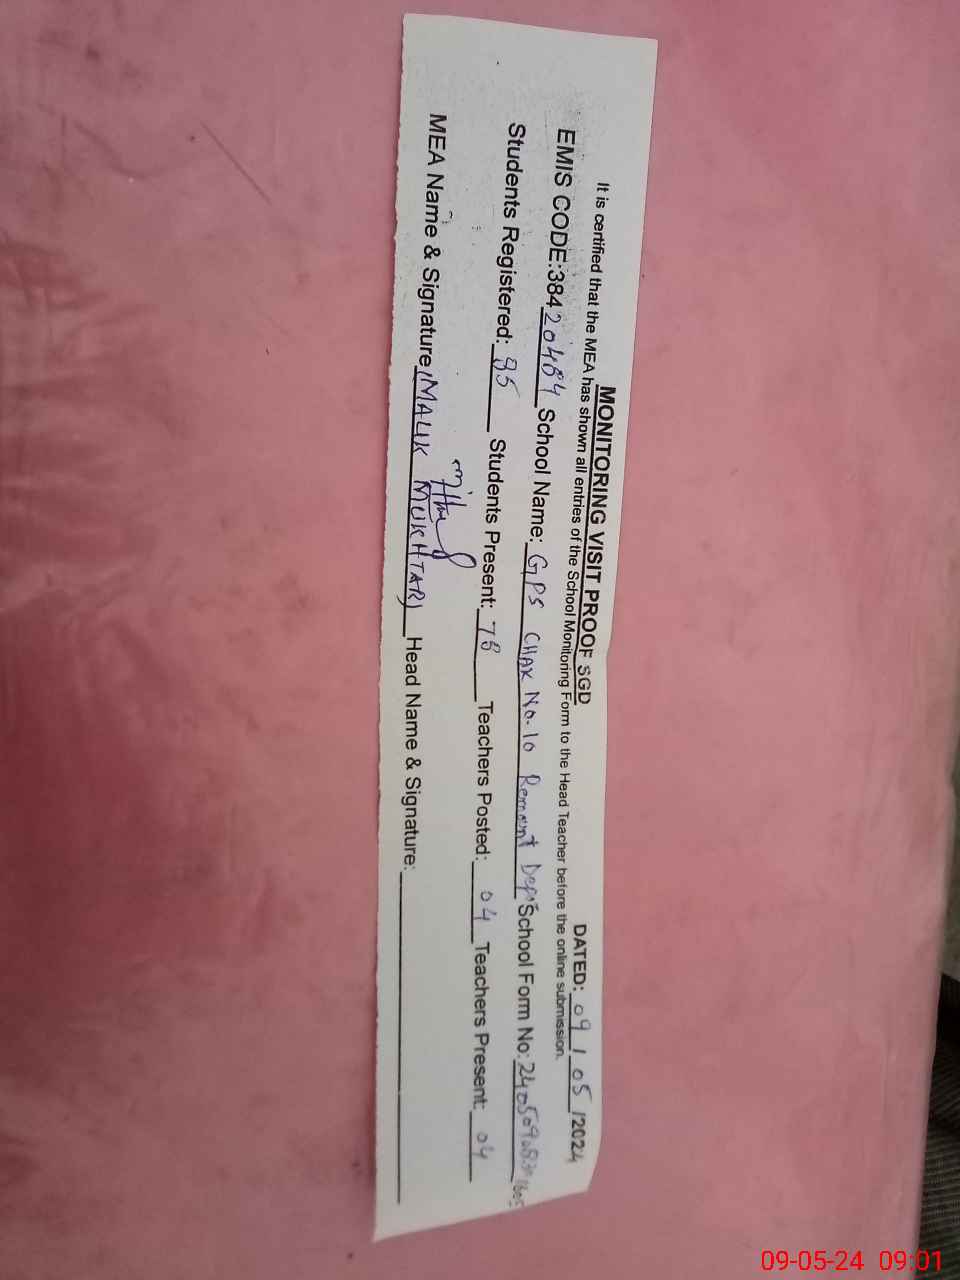 MONITORING VISIT PROOF SGD DATED: 09/05/2024
It is certified that the MEA has shown all entries of the School Monitoring Form to the Head Teacher before the online submission.
EMIS CODE:38420484 School Name: GPS CHAK No.10 Remount Depot School Form No:
Students Registered: 85 Students Present: 78 Teachers Posted: 04 Teachers Present: 04
MEA Name & Signature (MALIK MUKHTAR) Head Name & Signature:
09-05-24 09:01